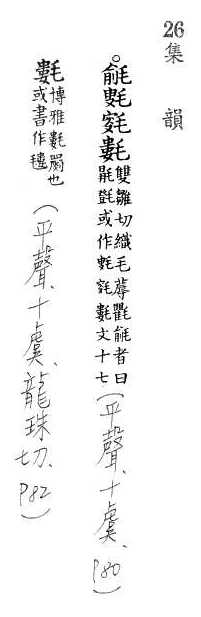 26 集韻
○毹氀雙雛切織毛蓐氍毹者曰
毾㲪或作氀文十七(平聲、十虞、P80)
氀博雅氀罽也
或書作(平聲、十虞、龍珠切、P82)